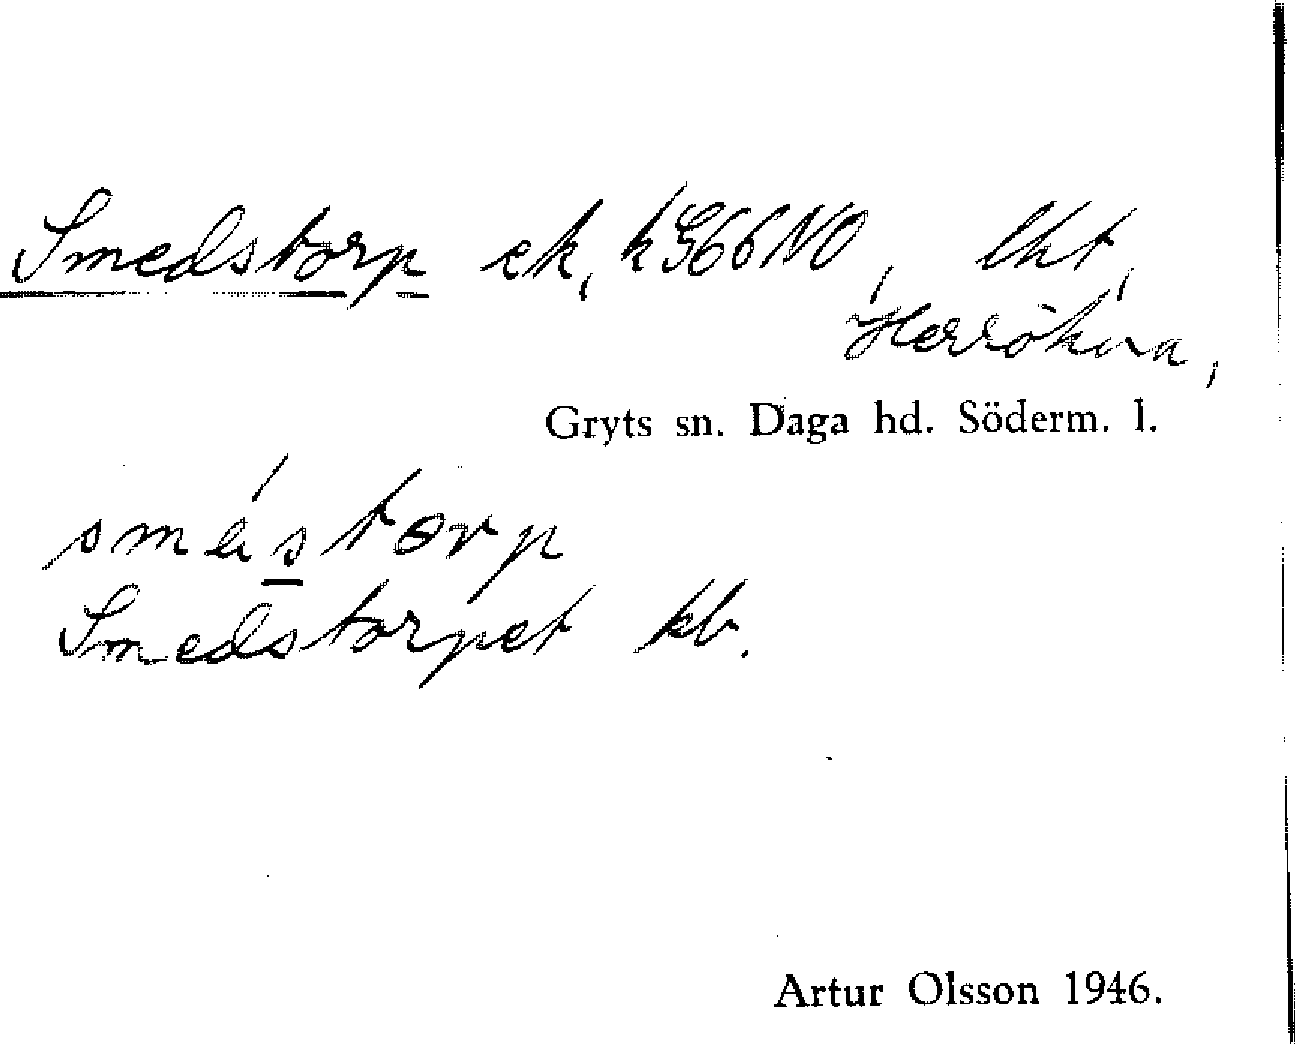 Smedstorp ek, k G66NO, lht,
Herrökna,
Gryts sn. Daga hd. Söderm. l.
smés torp
Smedstorpet kb.
Artur Olsson 1946.